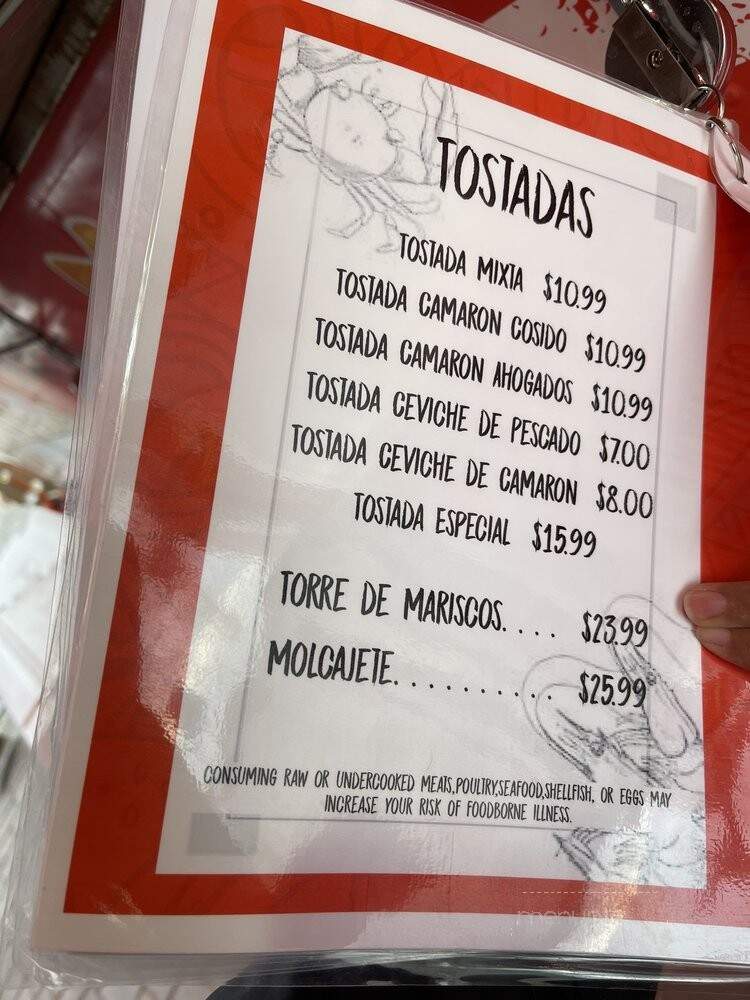 TOSTADAS
TOSTADA MIXTA $10.99
TOSTADA CAMARON COSIDO $10.99
TOSTADA CAMARON AHOGADOS $10.99
TOSTADA CEVICHE DE PESCADO $7.00
TOSTADA CEVICHE DE CAMARON $8.00
TOSTADA ESPECIAL $15.99
TORRE DE MARISCOS.... $23.99
MOLCAJETE........... $25.99
CONSUMING RAW OR UNDERCOOKED MEATS,POULTRY,SEAFOOD,SHELLFISH, OR EGGS MAY
INCREASE YOUR RISK OF FOODBORNE ILLNESS.